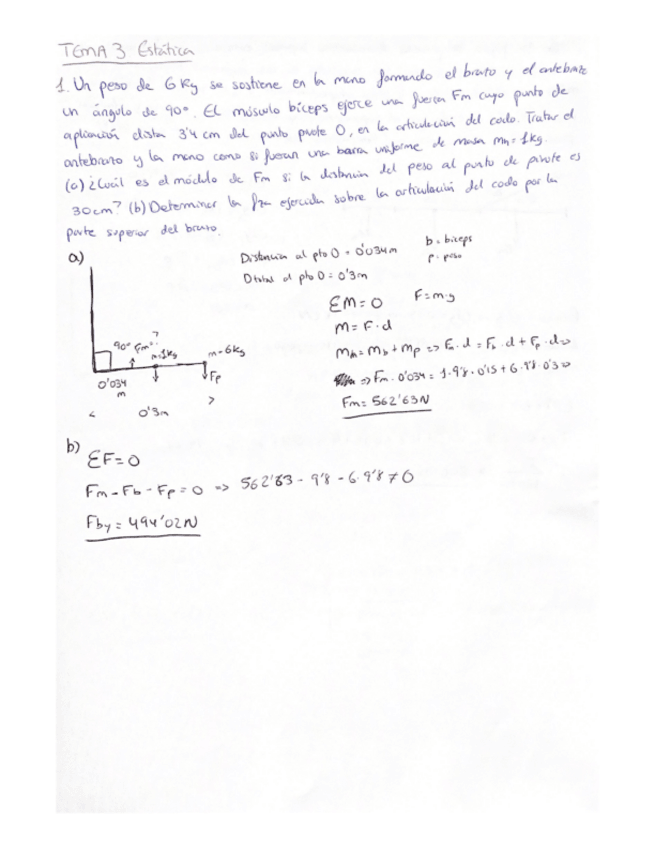 TEMA 3 Estática
1. Un peso de 6 Kg se sostiene en la mano formando el brazo y el antebrazo
un ángulo de 90º. El músculo bíceps ejerce una fuerza Fm cuyo punto de
aplicación dista 3'4 cm del punto pivote O, en la articulación del codo. Tratar el
antebrazo y la mano como si fueran una barra uniforme de masa mh = 1 kg.
(a) ¿Cuál es el módulo de Fm si la distancia del peso al punto de pivote es
30cm? (b) Determinar la fza ejercida sobre la articulación del codo por la
parte superior del brazo.
a)
Distancia al pto O = 0'034m
b = biceps
Dtotal al pto O = 0'3m
p = peso
ΣM = 0
F = m·g
M = F · d
90º Fm ?
m=1kg
m=6kg
Fp
0'034
m
0'3m
=> Fm · 0'034 = 1·9'8 · 0'15 + 6·9'8 · 0'3 =>
Fm = 562'63N
b)
ΣF = 0
Fm - Fb - Fp = 0 => 562'63 - 9'8 - 6·9'8 ≠ 0
Fby = 494'02N